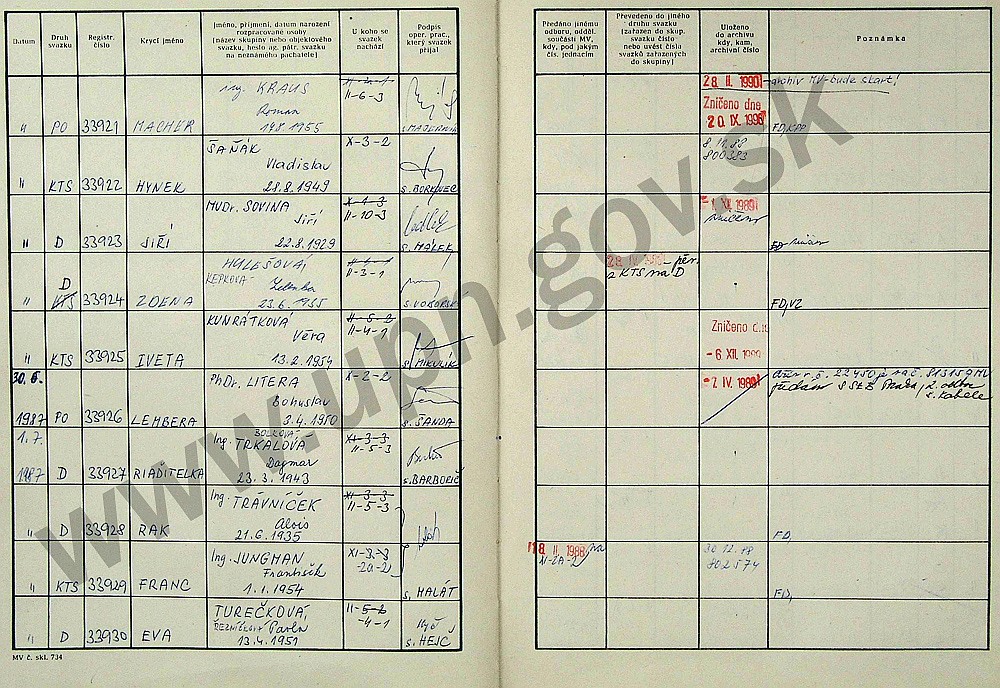 Datum
Druh svazku
Registr. číslo
Krycí jméno
Jméno, příjmení, datum narození
rozpracované osoby
(název skupiny nebo objektového
svazku, heslo ag. pátr. svazku
na neznámého pachatele)
U koho se
svazek
nachází
Podpis
oper. prac.,
který svazek
přijal
Předáno jinému
odboru, odděl.
součásti MV,
kdy, pod jakým
čís. jednacím
Převedeno do jiného
druhu svazku
(zařazen do skup.
svazku číslo
nebo uvést čísla
svazků zařazených
do skupiny)
Uloženo
do archivu
kdy, kam,
archivní číslo
Poznámka
ing. KRAUS
Roman
19.8.1955
II-6-3
" PO 33921 MACHER
28. II. 1990 archiv MV-bude skart!
Zničeno dne
20. IX. 1996
SAŇÁK
Vladislav
28.8.1949
X-3-2
" KTS 33922 HYNEK
s. BORKOVEC
8.11.88
800383
MUDr. SOVINA
Jiří
22.8.1929
X-1-3
II-10-3
" D 33923 JIŘÍ
s. MÁLEK
XII. 1989
HULEŠOVÁ
ŘEPKOVÁ Zdenka
23.6.1955
II-3-1
" D KTS 33924 ZDENA
s. VOBORSKÝ
s KTS na D
FD, VZ
KUNRÁTKOVÁ
Věra
13.2.1954
II-5-2
II-4-1
" KTS 33925 IVETA
s. MIKULÍK
Zničeno dne
-6. XII.
30.6.
1987 PO 33926 LEMBERA
PhDr. LITERA
Bohuslav
3.4.1950
X-2-2
s. ŠANDA
2 IV. 1989
1.7.
1987 D 33927 RIADITELKA
Ing. TRKALOVÁ
Dagmar
23.3.1943
XI-3-3
II-5-3
s. BARBORIČ
Ing. TRÁVNÍČEK
Alois
21.6.1935
XI-3-3
II-5-3
" D 33928 RAK
FD,
Ing. JUNGMAN
František
1.1.1954
XI-3-3
-2a-2
" KTS 33929 FRANC
s. HALÁT
18. II. 1988 na
30.12.88
802574
FD,
TUREČKOVÁ,
ŘEZNÍČKOVÁ Pavla
13.4.1951
II-5-2
-4-1
" D 33930 EVA
s. HEJČ
MV č. skl. 734
www.upn.gov.sk